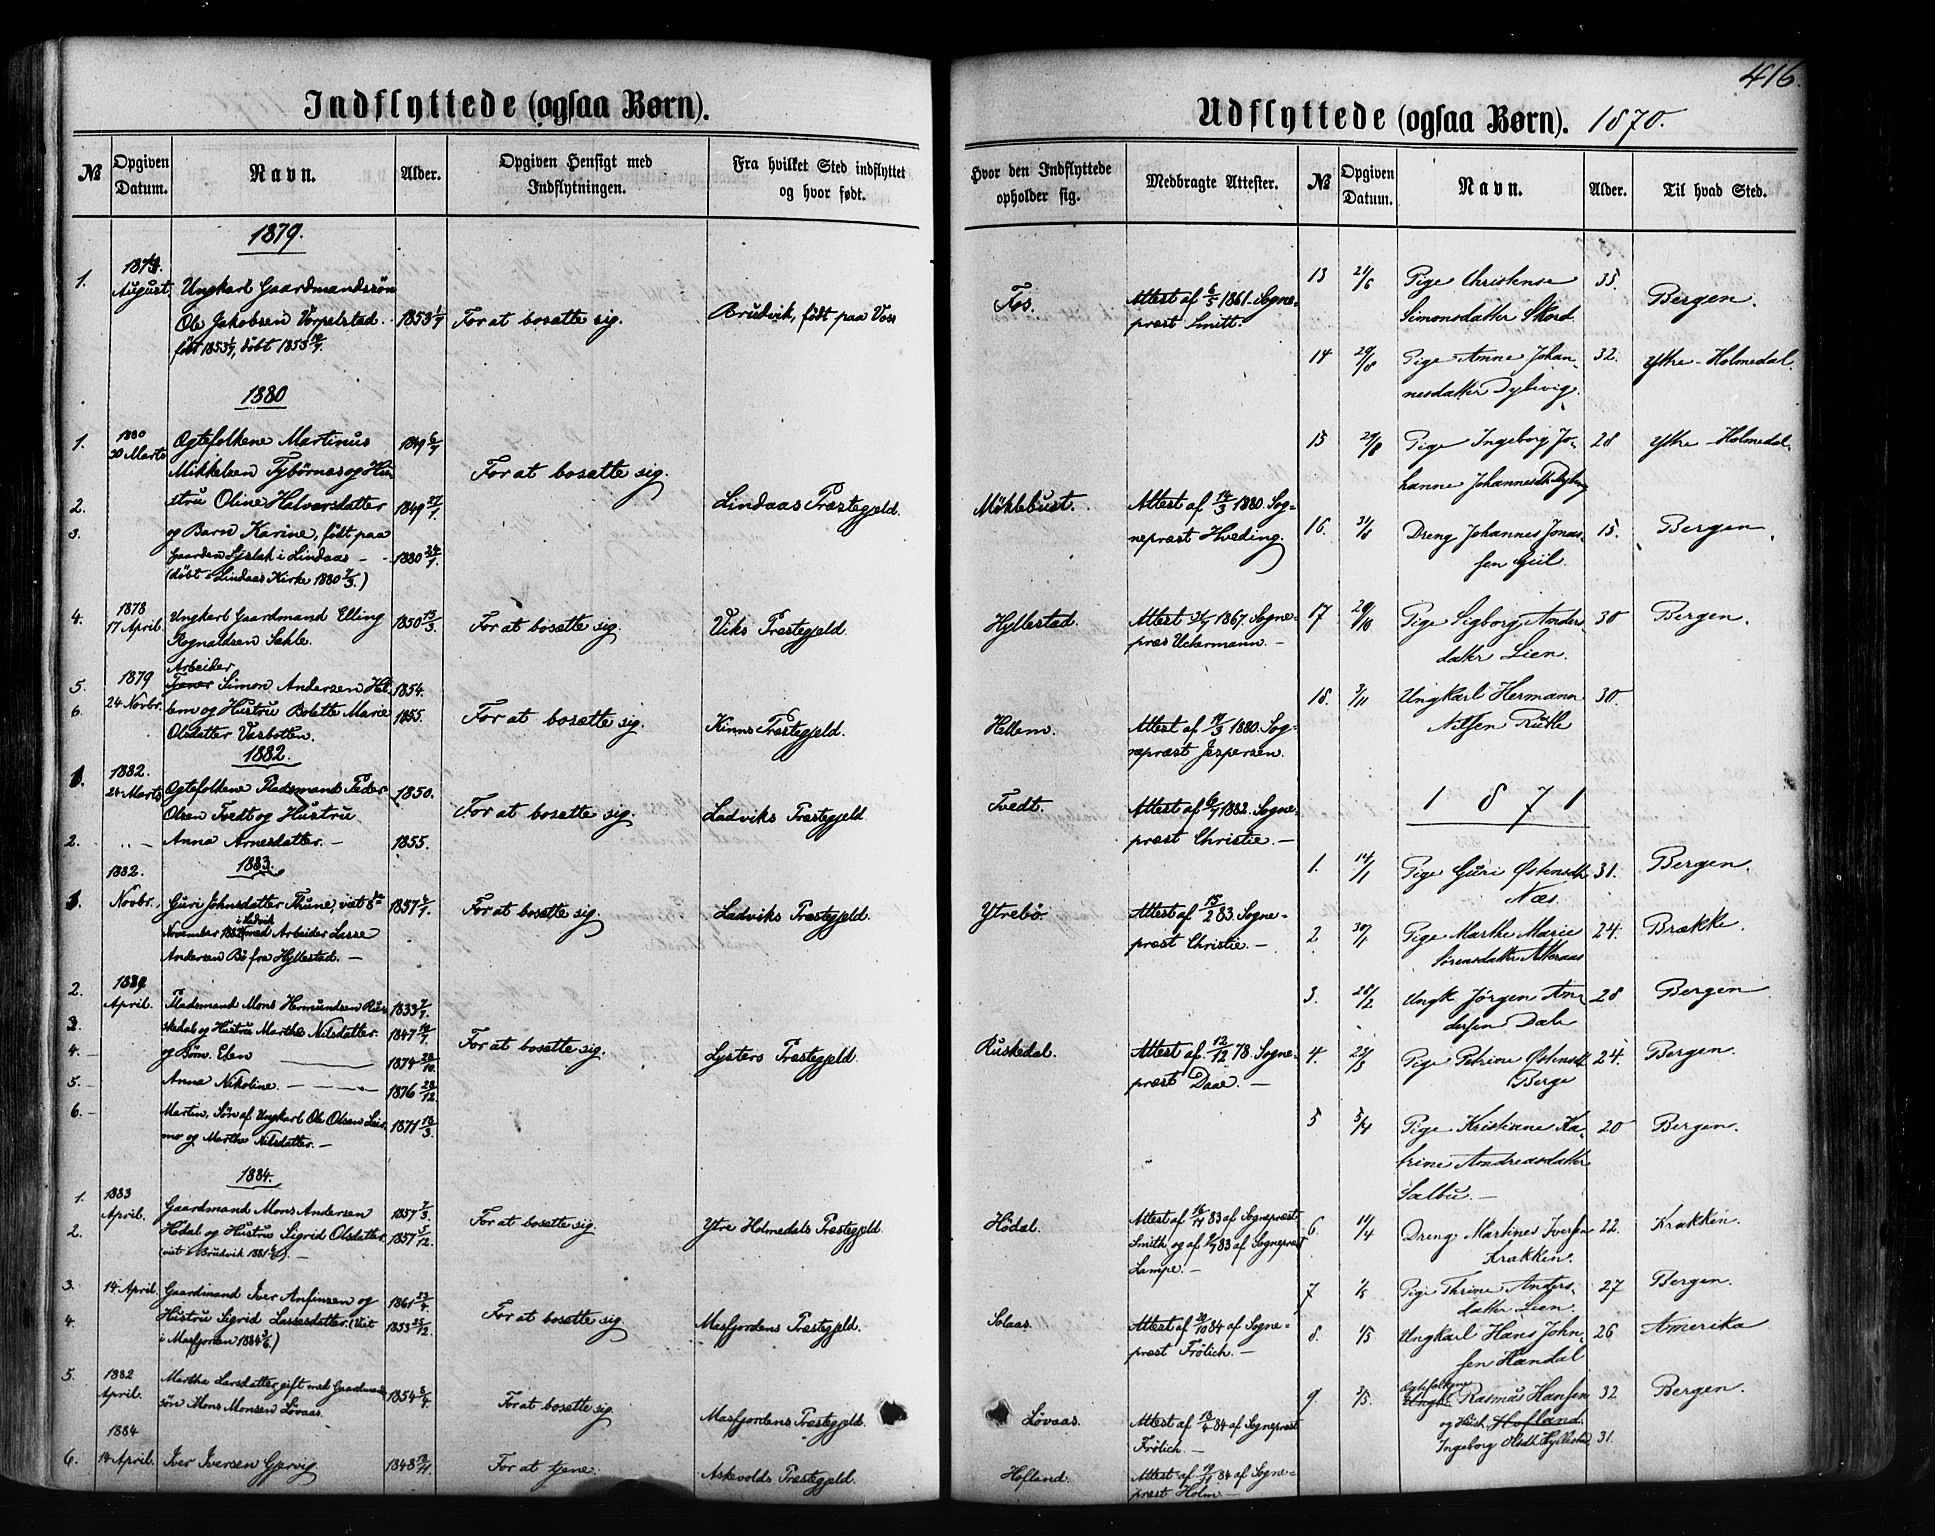 416.
Indflyttede (ogsaa Børn).
№
Opgiven Datum.
Navn.
Alder.
Opgiven Hensigt med Indflytningen.
Fra hvilket Sted indflyttet og hvor født.
Hvor den Indflyttede opholder sig.
Medbragte Attester.
1879.
1. August. Ungkarl Gaardmandssøn
Ole Jakobsen Vorpelstad 1853 1/7 For at bosætte sig. Brudvik, født paa Voss Fos. Attest af 6/5 1861 Sogne-
født 1853 1/7, døbt 1853 præst Smitt.
1880
1. 1880 Ægtefolkene Martinus 1849 6/7
30 Marts Mikkelsen Tybørnes og Hu- For at bosætte sig.
2. stru Oline Halvorsdatter 1849 27/7 Lindaas Præstegjeld. Møklebust. Attest af 14/3 1880. Sog-
3. og Barn Karine, født paa nepræst Hveding.
Gaarden i Lindaas – 1880 24/1
(døbt i Lindaas Kirke 1880 7/3.)
1878
4. 17 April. Ungkarl Gaardmand Elling 1850 15/3 For at bosætte sig. Viks Præstegjeld. Hyllestad. Attest 1867. Sogne-
Rognaldsen Sæhle. præs Uckermann. –
Arbeider
5. 1879 Simon Andersen Hel- 1854.
6. 24 Novbr. lem og Hustru Bolette Marie 1855. For at bosætte sig. Kinns Præstegjeld. Hellem. Attest af 19/3 1880. Sog-
Olsdatter Vasbotten. nepræst Jespersen.
1882.
1. 1882. 24 Marts Ægtefolkene Pladsmand Peder 1850.
Olsen Tvedt og Hustru For at bosætte sig. Ladviks Præstegjeld Tvedt. Attest af 6/7 1882. Sogne-
2. „ – Anna Arnesdatter. – 1855. præst Christie. –
1883.
1882.
1. Novbr. Guri Johnsdatter Thune, viet 8de 1857 For at bosætte sig. Ladviks Præstegjeld. Ytrebø. Attest af 15/2 83. Sogne-
i Ladvik
November 1882 med Arbeider Lasse præst Christie. –
Andersen Bø fra Hyllestad. –
2. April. Pladsmand Mons Hermundsen Rus- 1833 7/7
3. kedal og Hustru Marthe Nilsdatter. 1847
4. – og Børn. Elen 1874 28/10 For at bosætte sig. Lysters Præstegjeld Ruskedal. Attest af 12/12 78. Sogne-
5. – Anna Nikoline. – 1876 28/12 præst Daae. –
6. – Martin, Søn af Ungkarl Ole Olsen Lei- 1871 18/3
mo og Marthe Nilsdatter. –
1884.
1. 1883 Gaardmand Mons Andersen 1857 7/3
2. April. Hødal og Hustru Sigrid Olsdatter 1857 5/12 For at bosætte sig. Ytre Holmedals Præstegjeld. Hødal. Attest af 16/4 83 af Sognepræst
viet i Brudvik 1881 Smith og af 83 af Sognepræst
Lampe. –
3. 14 April. Gaardmand Iver Anfinsen og 1861 23/4
4. Hustru Sigrid Lassesdatter. (Viet 1853 25/12 For at bosætte sig Masfjordens Præstegjeld. Solaas. Attest af 20/10 84 af Sogne-
i Masfjorden 1884) præst Frölich. –
5. 1882 April. Martha Larsdatter, gift med Gaardmand- 1854 8/4
søn Mons Monsen Løvaas. For at bosætte sig Masfjordens Præstegjeld. Løvaas. Attest af 18/4 84 af Sognepræst
Frölich. –
1884
6. 14 April. Iver Iversen Gjervig. 1848 12/11 For at tjene. Askevolds Præstegjeld. Hofland. Attest af 84 af Sogne-
præst Holm –
Udflyttede (ogsaa Børn). 1870.
№
Opgiven Datum.
Navn.
Alder.
Til hvad Sted.
13 21/6 Pige Christense 35. Bergen.
Simonsdatter Skord.
14 29/8 Pige Anne Johan- 32. Ytre-Holmedal.
nesdatter Dybvig.
15 29/8 Pige Ingeborg Jo- 28 Ytre-Holmedal
hanne Johannesdt
16. 31/8 Dreng Johannes Jonas- 15. Bergen.
sen Giil.
17 29/10 Pige Sigborg Anders- 30 Bergen.
datter Lien.
18. 3/11 Ungkarl Hermann 30.
Nilsen Rutle
1871
1. 14/1 Pige Guri Østensdt. 31. Bergen.
Næs.
2 30/1 Pige Marthe Marie 24. Brække.
Sørensdatter Atteraas
3. 28/2 Ungk. Jörgen An- 28 Bergen
dersen Dale
4. 22/3 Pige Petrine Østensdt. 24. Bergen.
Berge
5 5/4 Pige Kristiane Ka- 20 Bergen.
trine Andreasdatter
Salbu. –
6. 14/4 Dreng Martines Iversen 22. Krakken.
Krakken.
7 1/5 Pige Thrine Anders- 27 Bergen.
datter Lien.
8. 1/5 Ungkarl Hans John- 26 Amerika
sen Handal
9 3/5. Ægtefolkene Rasmus Hansen 32 Bergen.
og Hust. Hofland.
Ingeborg Olsdt. Hyllestad 31.